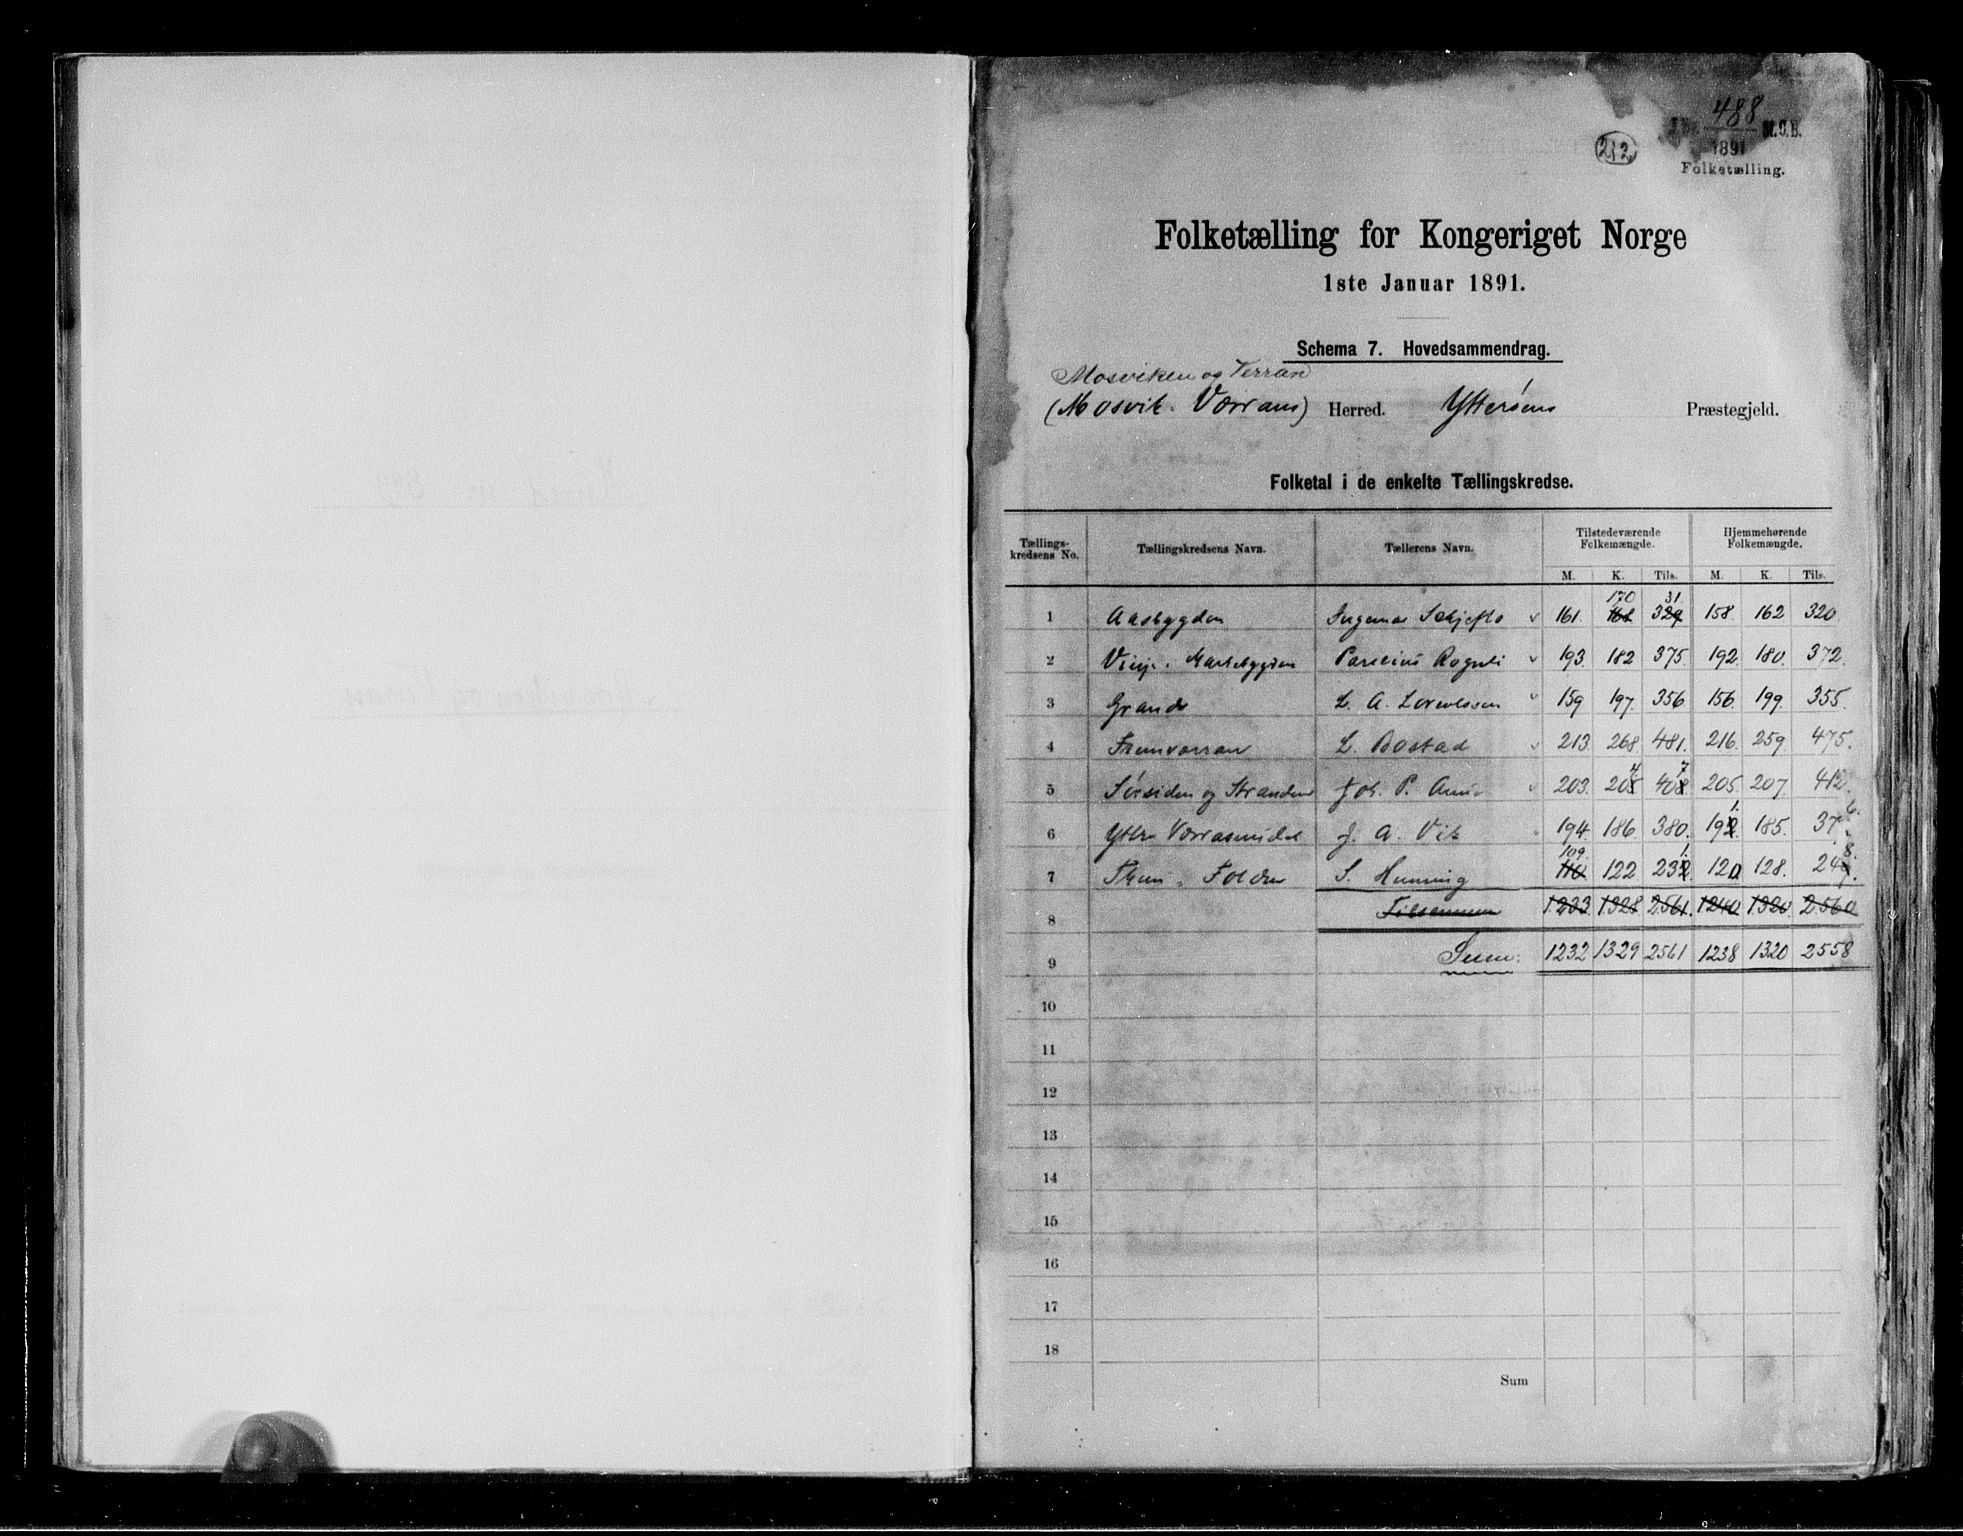 488
1891 M.O.B.
212
Folketælling.
Folketælling for Kongeriget Norge
1ste Januar 1891.
Schema 7. Hovedsammendrag.
Mosviken og Verran
(Mosvik. Værrans) Herred. Ytterøens Præstegjeld.
Folketal i de enkelte Tællingskredse.
Tællings-kredsens No. Tællingskredsens Navn. Tællerens Navn. Tilstedeværende Folkemængde. Hjemmehørende Folkemængde.
M. K. Tils. M. K. Tils.
170 31.
1 Aasbygden Ingemar 161. 168 329 158. 162 320
2 Vinje . Markabygden Parelius 193. 182 375. 192. 180. 372.
3 Grande L. A. Lorentssen 159 197. 356 156. 199. 355.
4 Fremværran L. Bostad 213. 268. 481. 216. 259. 475.
4 7
5 Sørsiden og Stranden Joh. P. 203. 205 408 205. 207. 412.
1. 6.
6 Yttre Værrasundet J. A. Vik 194. 186. 380. 192. 185. 37
109. 1. 8.
7 Folden S. Henning 110 122 232. 120 128. 249.
8 Tilsammen 1233. 1328 2561. 1240 1320. 2560
9 Sum: 1232 1329 2561 1238 1320 2558
10
11
12
13
14
15
16
17
18
Sum